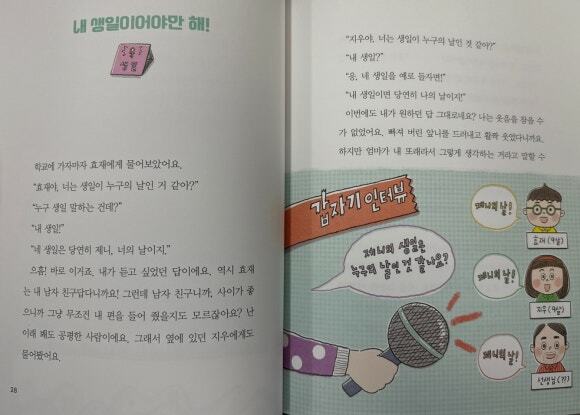 내 생일이어야만 해!
학교에 가자마자 효재에게 물어보았어요.
“효재야, 너는 생일이 누구의 날인 거 같아?”
“누구 생일 말하는 건데?”
“내 생일!”
“네 생일은 당연히 제니, 너의 날이지.”
으흠! 바로 이거죠. 내가 듣고 싶었던 답이에요. 역시 효재
는 내 남자 친구답다니까요! 그런데 남자 친구니까, 사이가 좋
으니까 그냥 무조건 내 편을 들어 줬을지도 모르잖아요? 난
이래 봬도 공평한 사람이에요. 그래서 옆에 있던 지우에게도
물어봤어요.
28
“지우야, 너는 생일이 누구의 날인 것 같아?”
“내 생일?”
“응, 네 생일을 예로 들자면!”
“내 생일이면 당연히 나의 날이지!”
이번에도 내가 원하던 답 그대로네요? 나는 웃음을 참을 수
가 없었어요. 빠져 버린 앞니를 드러내고 활짝 웃었다니까요.
하지만 엄마가 내 또래라서 그렇게 생각하는 거라고 말할 수
갑자기 인터뷰
제니의 생일은
누구의 날인 것 같나요?
제니의 날!
효재 (9살)
제니의 날!
지우 (9살)
제니의 날!
선생님 (??)